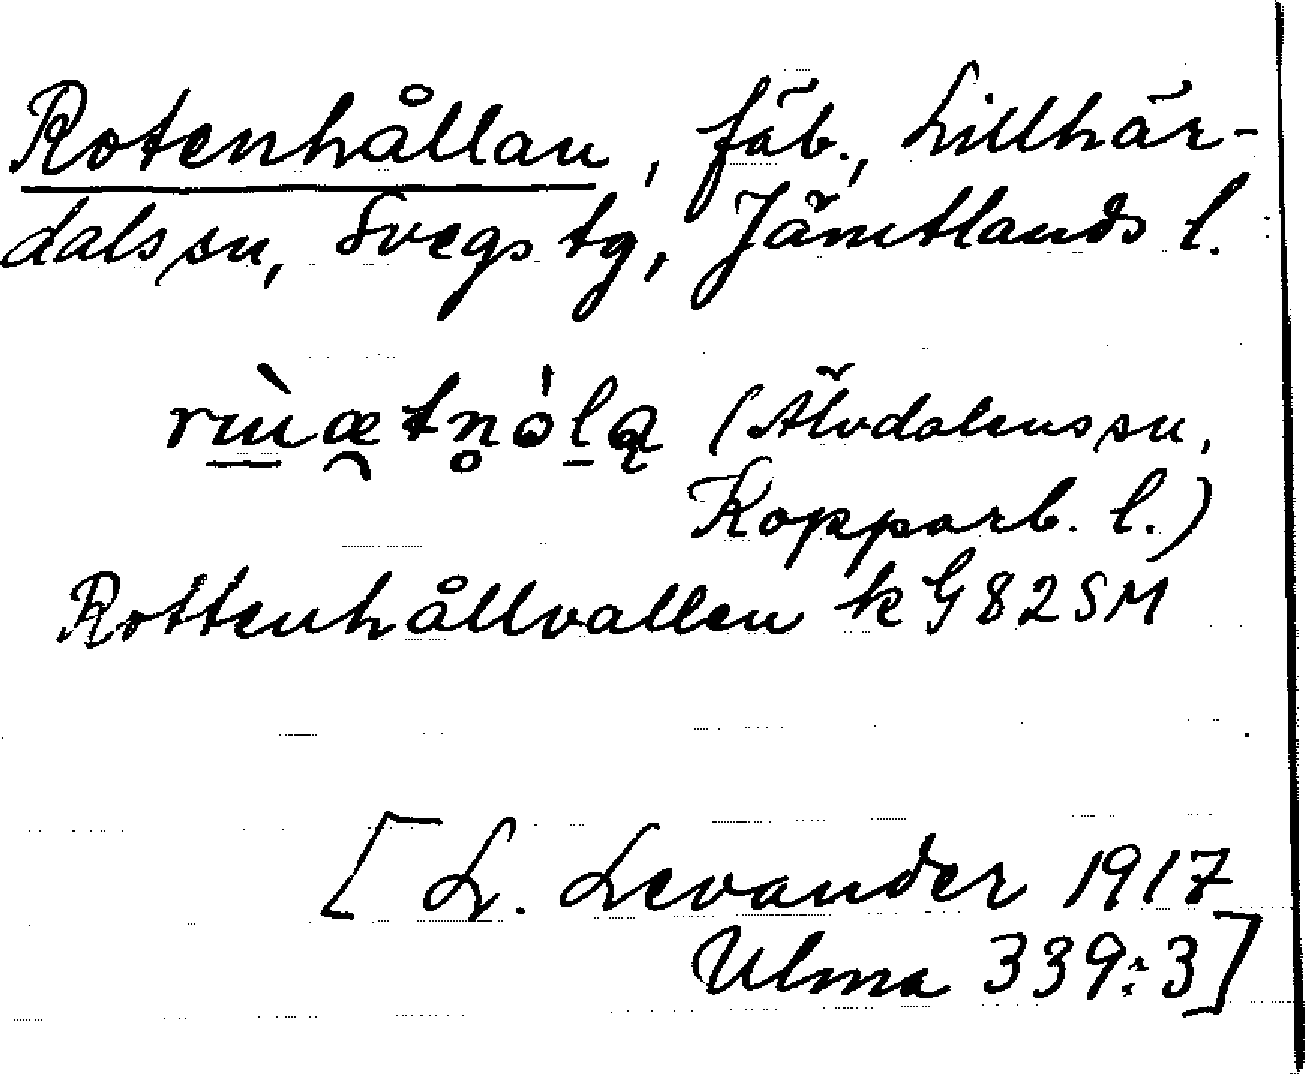 Rotenhållan, fäb., Lillhär-
dals sn, Svegs tg, Jämtlands l.
(Älvdalens sn,
Kopparb. l.)
Rottenhållvallen kG 82SM
[L. Levander 1917
Ulma 339:3]